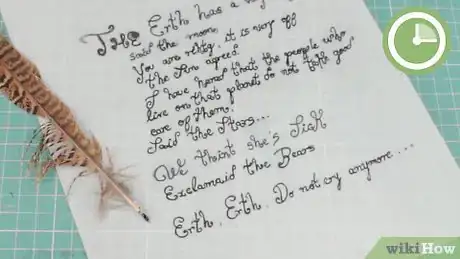 THE Erth has a
said the moon.
You are rihtg, it is very off
the Sun agreed.
I have hered that the people who
live on that planet do not take good
care of them.
Said the Stars...
We thint she's Sick
Exclamaid the Bears
Erth, Erth, Do not cry anymore....
wikiHow